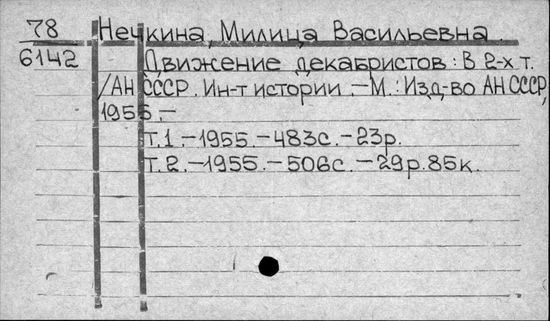 78 Нечкина, Милица Васильевна.
6142 Движение декабристов: В 2-х т.
/АН СССР. Ин-т истории. – М.: Изд-во АН СССР,
1955. –
Т.1. – 1955. – 483с. – 23р.
Т.2. – 1955. – 506с. – 29р. 85к.